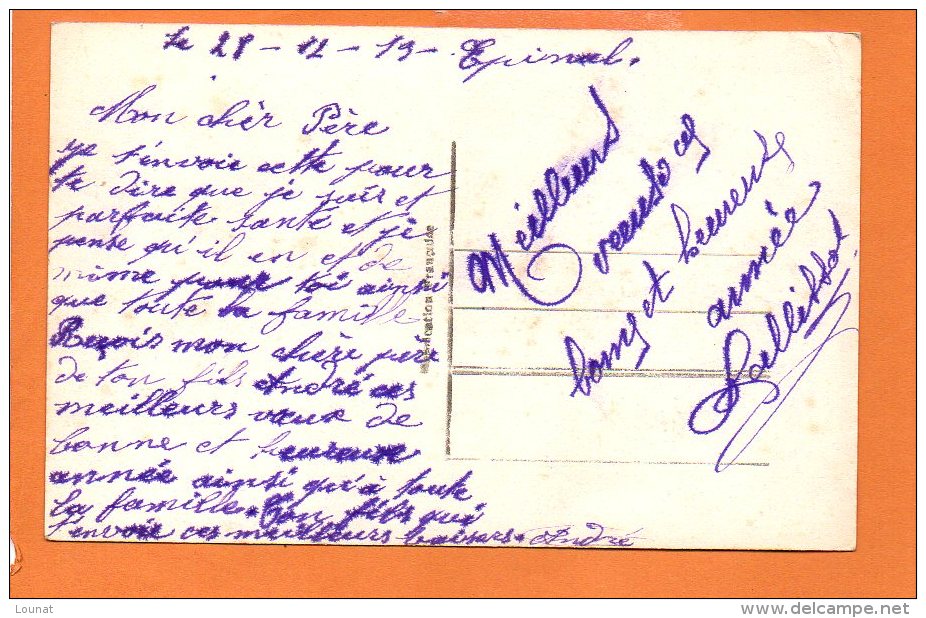 Le 28 - 12 - 19 - Epinal.
Mon cher Père
je t'envoie cette pour
te dire que je suis et
parfaite santé et je
pense qu'il en et de
même pour toi ainsi
que toute la famille
Reçois mon chère père
de ton fils André ces
meilleurs vœux de
bonne et heureuse
année ainsi qu'à toute
la famille. Ton fils qui
t'envoie ces meilleurs baisers. André
Meilleurs
bonne et heureuse
année
Fabrication Française
Lounat
www.delcampe.net